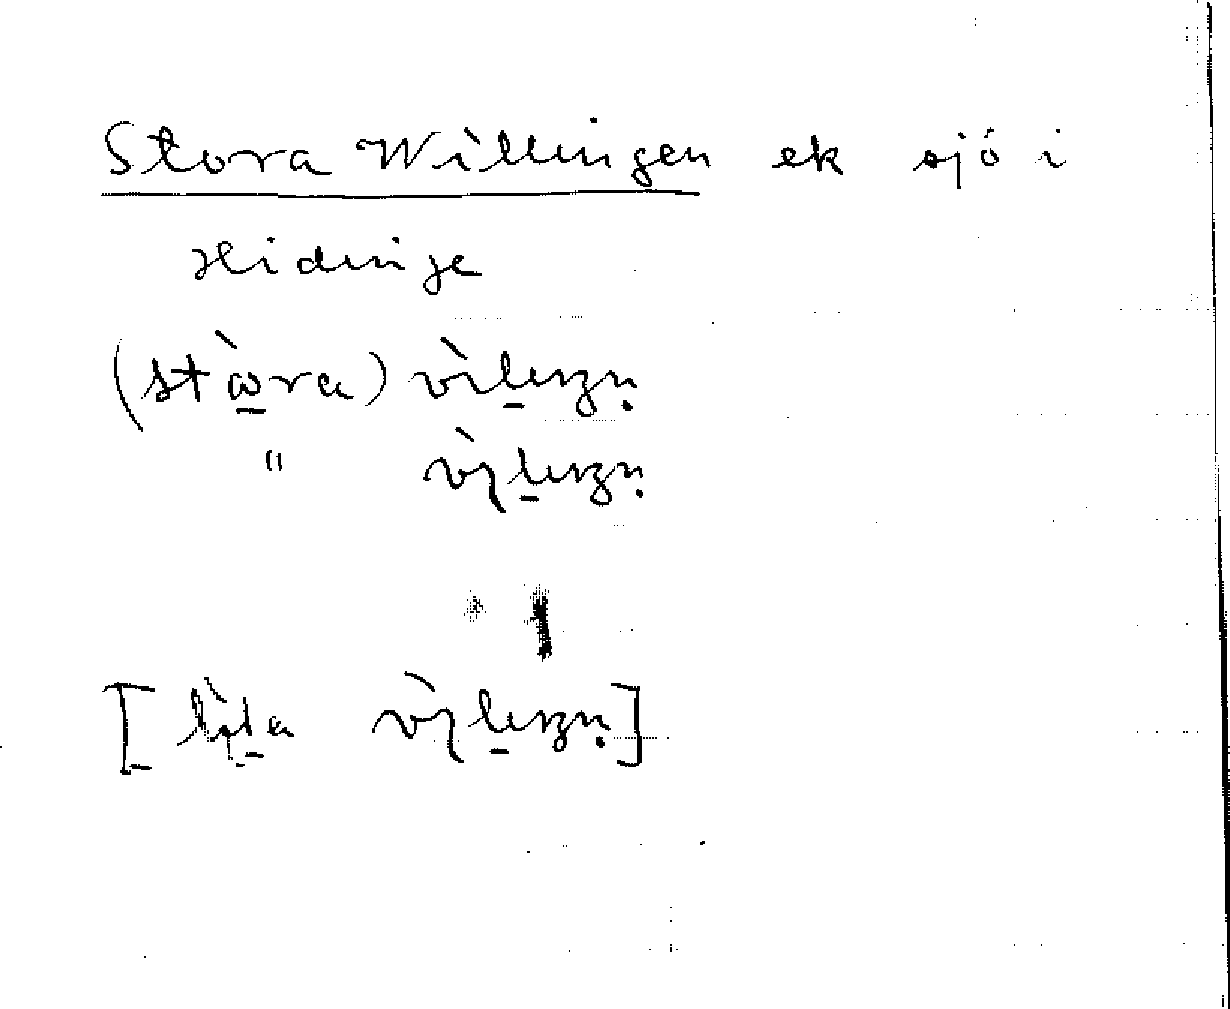 Stora Willingen ek sjö i
Hidinge
(stòra) vìleŋn̥
" vìļeŋn̥
[lìļa vìļeŋn̥]